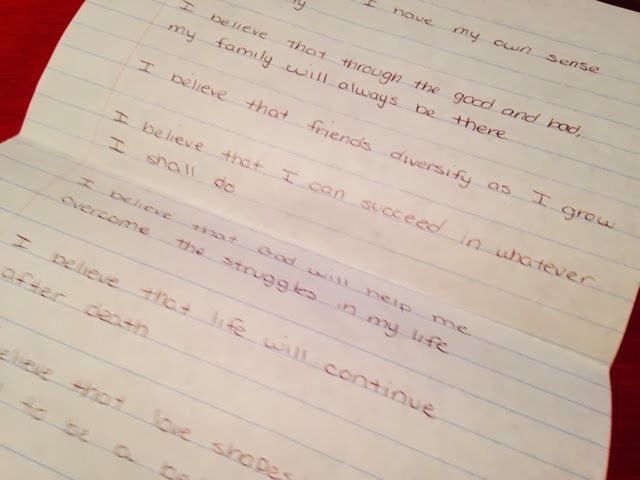 I have my own sense
I believe that through the good and bad,
my family will always be there
I believe that friends diversify as I grow
I believe that I can succeed in whatever
I shall do
I believe that God will help me
overcome the struggles in my life
I believe that life will continue
after death
believe that love shapes
to be a